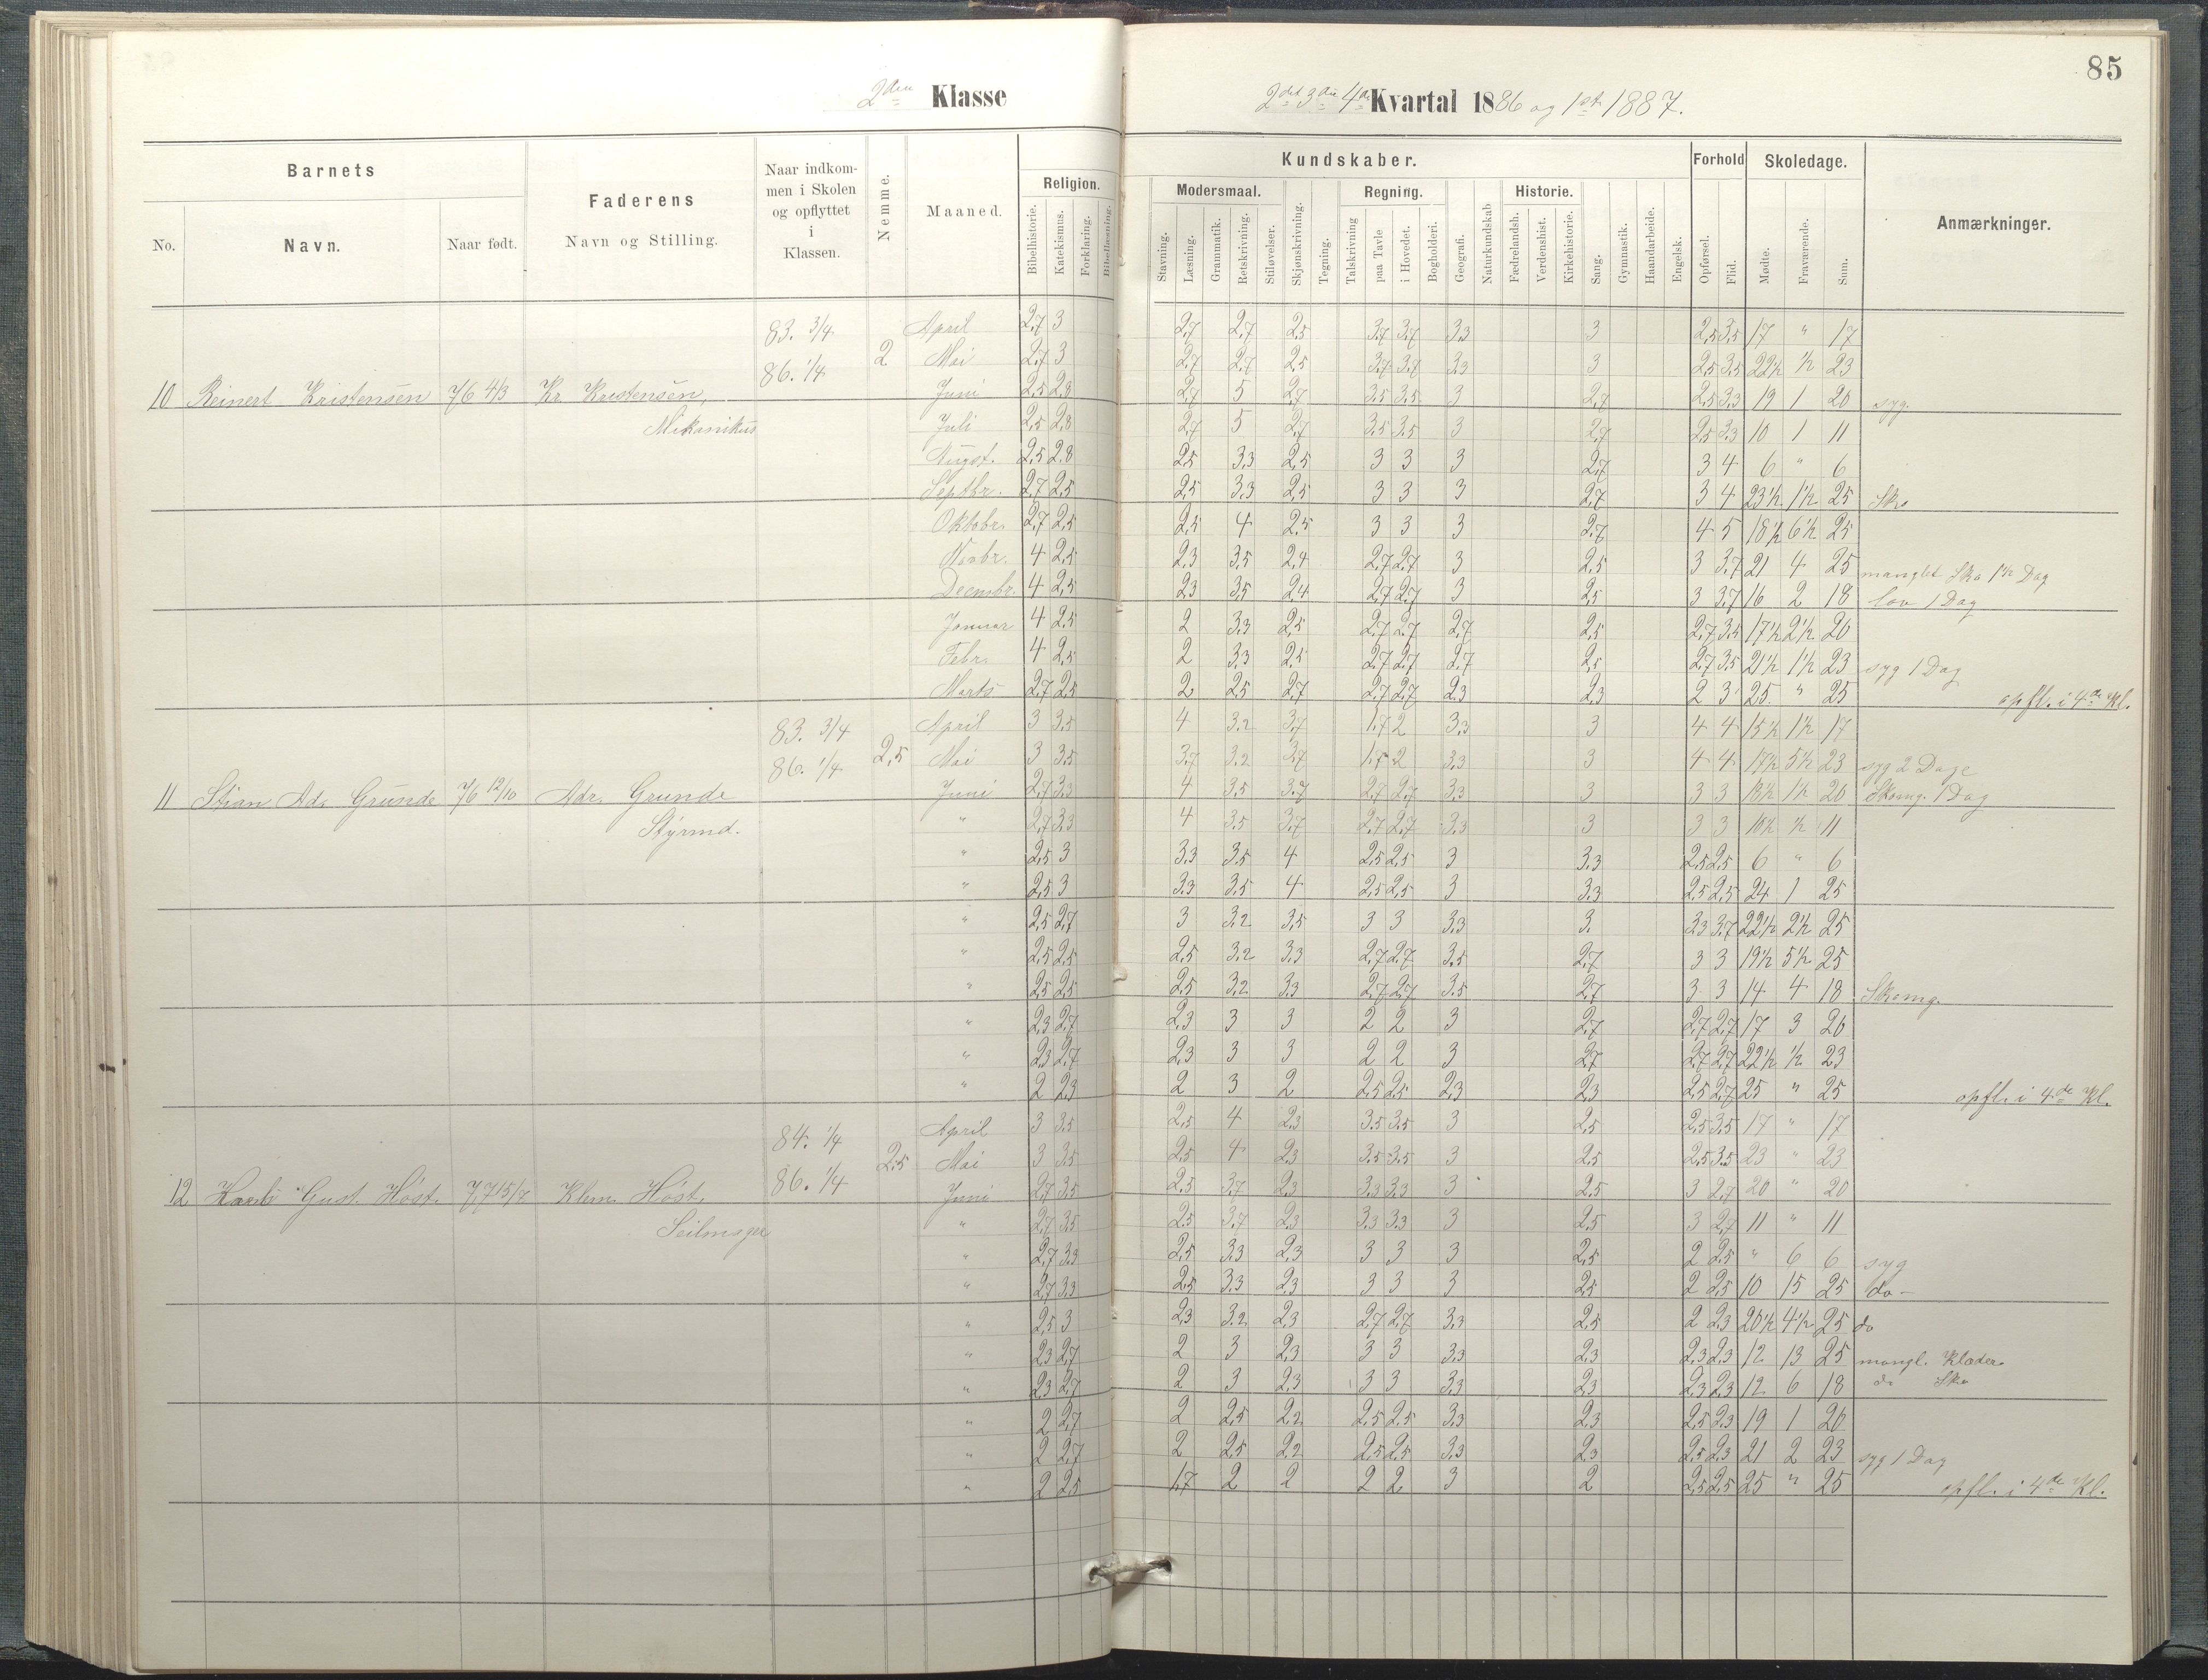 85
2den Klasse
2det 3die 4de Kvartal 1886 og 1ste 1887.
Barnets
Faderens
Naar indkommen i Skolen og opflyttet i Klassen.
Nemme.
Maaned.
Kundskaber.
Forhold
Skoledage.
Anmærkninger.
Religion.
Modersmaal.
Regning.
Historie.
No.
Navn.
Naar født.
Navn og Stilling.
Bibelhistorie. Katekismus. Forklaring. Bibellæsning. Stavning. Læsning. Grammatik. Retskrivning. Stiløvelser. Skjønskrivning. Tegning. Talskrivning paa Tavle i Hovedet. Bogholderi. Geografi. Naturkundskab Fædrelandsh. Verdenshist. Kirkehistorie. Sang. Gymnastik. Haandarbeide. Engelsk. Opførsel. Flid. Mødte. Fraværende. Sum.
83. 3/4 April 2,7 3 2,7 2,7 2,5 3,7 3,7 3,3 3 2,5 3,5 17 " 17
86. 1/4 2 Mai 2,7 3 2,7 2,7 2,5 3,7 3,7 3,3 3 2,5 3,5 22½ ½ 23
10 Reinert Kristensen 76 4/3 Kr. Kristensen, Juni 2,5 2,8 2,7 5 2,7 3,5 3,5 3 2,7 2,5 3,3 19 1 20 syg.
Mikanikus Juli 2,5 2,8 2,7 5 2,7 3,5 3,5 3 2,7 2,5 3,3 10 1 11
Augst. 2,5 2,8 2,5 3,3 2,5 3 3 3 2,7 3 4 6 " 6
Septbr. 2,7 2,5 2,5 3,3 2,5 3 3 3 2,7 3 4 23½ 1½ 25 Sko
Oktobr. 2,7 2,5 2,5 4 2,5 3 3 3 2,7 4 5 18½ 6½ 25
Novbr. 4 2,5 2,3 3,5 2,4 2,7 2,7 3 2,5 3 3,7 21 4 25 manglet Sko 1½ Dag
Decmbr. 4 2,5 2,3 3,5 2,4 2,7 2,7 3 2,5 3 3,7 16 2 18 lov 1 Dag
Januar 4 2,5 2 3,3 2,5 2,7 2,7 2,7 2,5 2,7 3,5 17½ 2½ 20
Febr. 4 2,5 2 3,3 2,5 2,7 2,7 2,7 2,5 2,7 3,5 21½ 1½ 23 syg 1 Dag
Marts 2,7 2,5 2 2,5 2,7 2,7 2,7 2,3 2,3 2 3 25 " 25 opfl. i 4de Kl.
83. 3/4 April 3 3,5 4 3,2 3,7 1,7 2 3,3 3 4 4 15½ 1½ 17
86. 1/4 2,5 Mai 3 3,5 3,7 3,2 3,7 1,7 2 3,3 3 4 4 17½ 5½ 23 syg 2 Dage
11 Stian Adr. Grunde 76 12/10 Adr. Grunde Juni 2,7 3,3 4 3,5 3,7 2,7 2,7 3,3 3 3 3 18½ 1½ 20 Skomg. 1 Dag
Styrmd. " 2,7 3,3 4 3,5 3,7 2,7 2,7 3,3 3 3 3 10½ ½ 11
" 2,5 3 3,3 3,5 4 2,5 2,5 3 3,3 2,5 2,5 6 " 6
" 2,5 3 3,3 3,5 4 2,5 2,5 3 3,3 2,5 2,5 24 1 25
" 2,5 2,7 3 3,2 3,5 3 3 3,3 3. 3,3 3,7 22½ 2½ 25
" 2,5 2,5 2,5 3,2 3,3 2,7 2,7 3,5 2,7 3 3 19½ 5½ 25
" 2,5 2,5 2,5 3,2 3,3 2,7 2,7 3,5 2,7 3 3 14 4 18 Skomg.
" 2,3 2,7 2,3 3 3 2 2 3 2,7 2,7 2,7 17 3 20
" 2,3 2,7 2,3 3 3 2 2 3 2,7 2,7 2,7 22½ ½ 23
" 2 2,3 2 3 2 2,5 2,5 2,3 2,3 2,5 2,7 25 " 25 opfl. i 4de Kl.
84. 1/4 April 3 3,5 2,5 4 2,3 3,5 3,5 3 2,5 2,5 3,5 17 " 17
86. 1/4 2,5 Mai 3 3,5 2,5 4 2,3 3,5 3,5 3 2,5 2,5 3,5 23 " 23
12 Gust. Høst. 77 15/7 Klem. Høst. Juni 2,7 3,5 2,5 3,7 2,3 3,3 3,3 3 2,5 3 2,7 20 " 20
Seilmager " 2,7 3,5 2,5 3,7 2,3 3,3 3,3 3 2,5 3 2,7 11 " 11
" 2,7 3,3 2,5 3,3 2,3 3 3 3 2,5 2 2,5 " 6 6 syg
" 2,7 3,3 2,5 3,3 2,3 3 3 3 2,5 2 2,5 10 15 25 do -
" 2,5 3 2,3 3,2 2,3 2,7 2,7 3,3 2,5 2 2,3 20½ 4½ 25 do
" 2,3 2,7 2 3 2,3 3 3 3,3 2,3 2,3 2,3 12 13 25 mangl. Klæder
" 2,3 2,7 2 3 2,3 3 3 3,3 2,3 2,3 2,3 12 6 18 do Sko
" 2 2,7 2 2,5 2,2 2,5 2,5 3,3 2,3 2,5 2,3 19 1 20
" 2 2,7 2 2,5 2,2 2,5 2,5 3,3 2,3 2,5 2,3 21 2 23 syg 1 Dag
" 2 2,5 1,7 2 2 2 2 3 2 2,5 2,5 25 " 25 opfl. i 4de Kl.